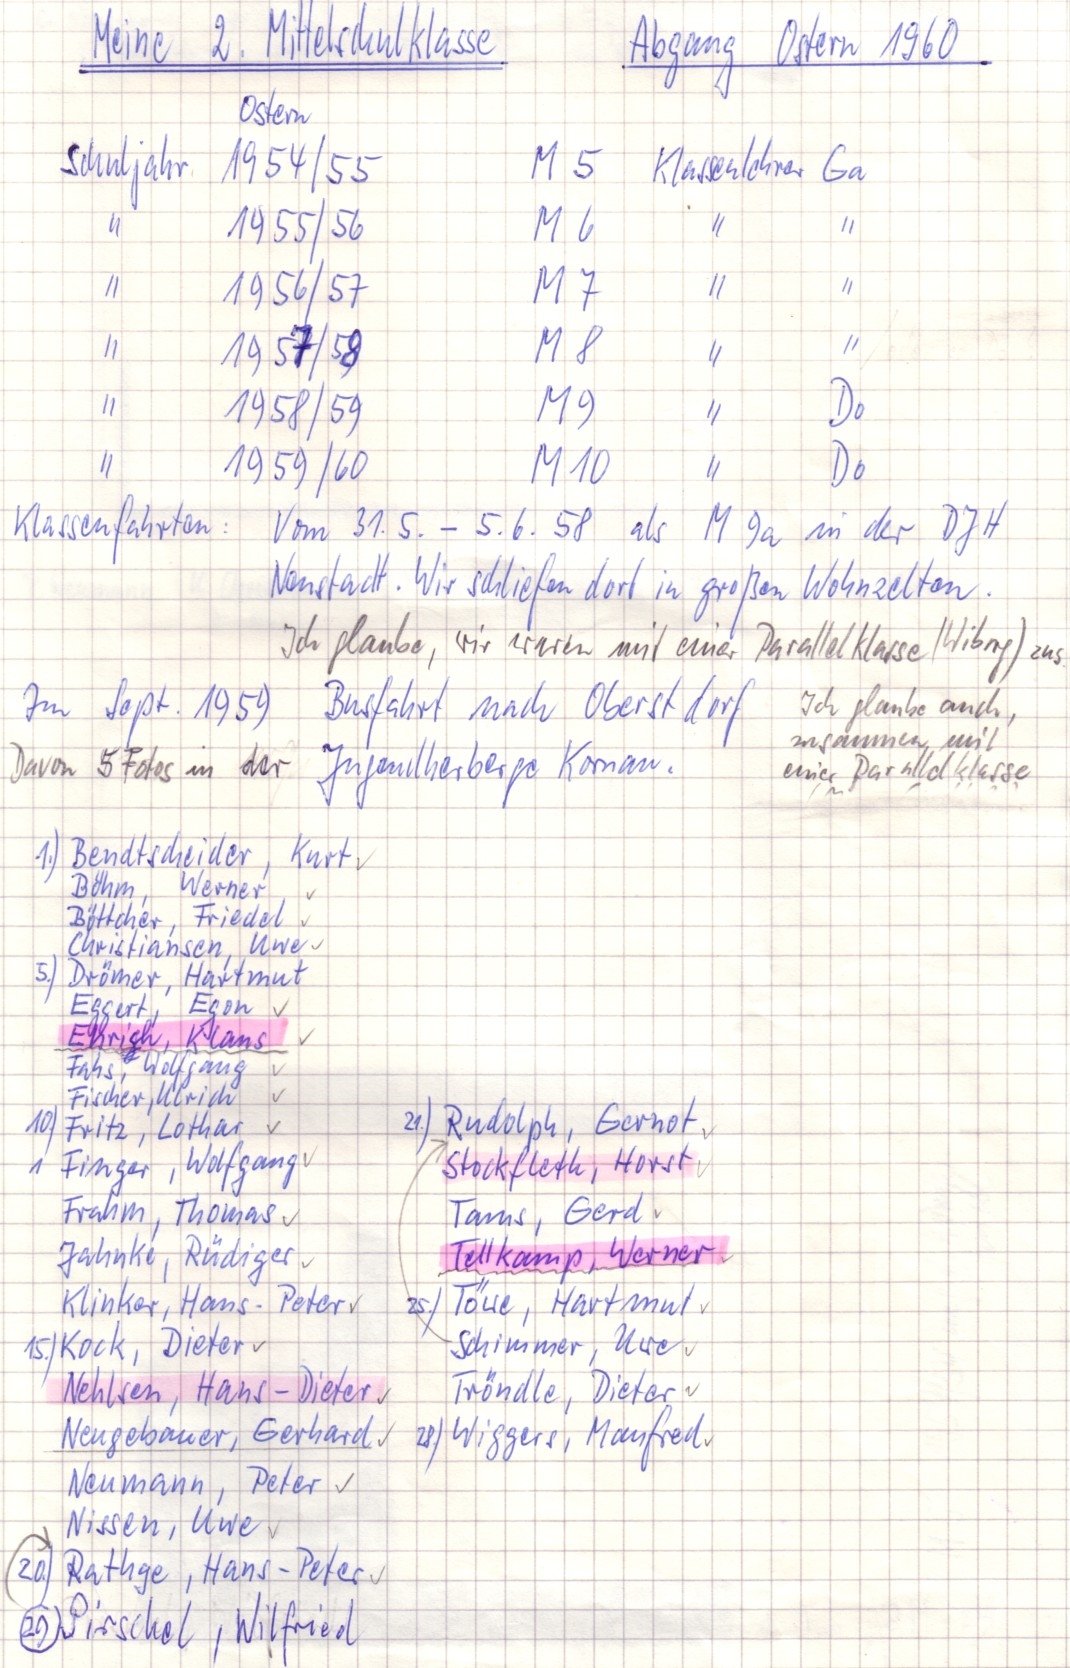 Meine 2. Mittelschulklasse Abgang Ostern 1960
Ostern
Schuljahr 1954/55 M 5 Klassenlehrer Ga
" 1955/56 M 6 " "
" 1956/57 M 7 " "
" 1957/58 M 8 " "
" 1958/59 M 9 " Do
" 1959/60 M 10 " Do
Klassenfahrten: Vom 31.5. – 5.6. 58 als M 9a in der DJH
Neustadt. Wir schliefen dort in großen Wohnzelten.
Ich glaube, wir waren mit einer Parallelklasse (Wiborg) zus.
Im Sept. 1959 Busfahrt nach Oberstdorf Ich glaube auch,
zusammen mit
Davon 5 Fotos in der Jugendherberge Kornau. einer Parallelklasse
1.) Bendtscheider, Kurt ✓
Böhm, Werner ✓
Böttcher, Friedel ✓
Christiansen, Uwe ✓
5.) Drömer, Hartmut
Eggert, Egon ✓
Ehrich, Klaus ✓
Fahs, Wolfgang ✓
Fischer, Ulrich ✓
10) Fritz, Lothar ✓
1 Finger, Wolfgang ✓
Frahm, Thomas ✓
Jahnke, Rüdiger ✓
Klinker, Hans-Peter ✓
15.) Kock, Dieter ✓
Nehlsen, Hans-Dieter ✓
Neugebauer, Gerhard ✓
Neumann, Peter ✓
Nissen, Uwe ✓
20.) Rathge, Hans-Peter ✓
29) Pirschel, Wilfried
21.) Rudolph, Gernot ✓
Stockfleth, Horst ✓
Tams, Gerd ✓
Tellkamp, Werner ✓
25.) Töwe, Hartmut ✓
Schimmer, Uwe ✓
Tröndle, Dieter ✓
28) Wiggers, Manfred ✓